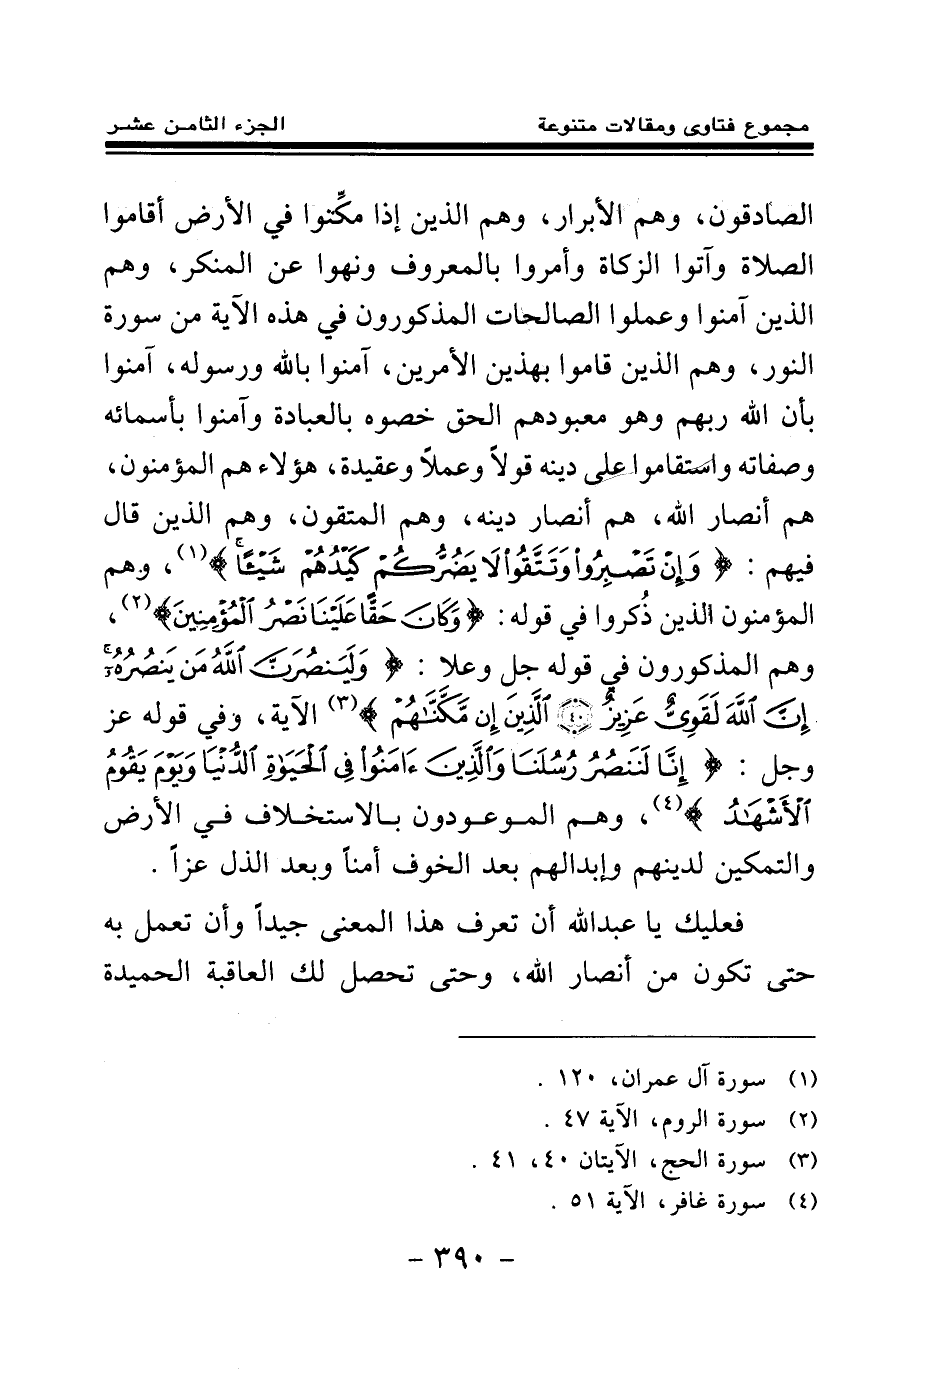 مجموع فتاوى ومقالات متنوعة الجزء الثامن عشر
الصادقون، وهم الأبرار، وهم الذين إذا مكِّنوا في الأرض أقاموا
الصلاة وآتوا الزكاة وأمروا بالمعروف ونهوا عن المنكر، وهم
الذين آمنوا وعملوا الصالحات المذكورون في هذه الآية من سورة
النور، وهم الذين قاموا بهذين الأمرين، آمنوا بالله ورسوله، آمنوا
بأن الله ربهم وهو معبودهم الحق خصوه بالعبادة وآمنوا بأسمائه
وصفاته واستقاموا على دينه قولاً وعملاً وعقيدة، هؤلاء هم المؤمنون،
هم أنصار الله، هم أنصار دينه، وهم المتقون، وهم الذين قال
فيهم : ﴿ وَإِن تَصْبِرُوا۟ وَتَتَّقُوا۟ لَا يَضُرُّكُمْ كَيْدُهُمْ شَيْـًٔا ۗ ﴾(١)، وهم
المؤمنون الذين ذُكروا في قوله: ﴿وَكَانَ حَقًّا عَلَيْنَا نَصْرُ ٱلْمُؤْمِنِينَ﴾(٢)،
وهم المذكورون في قوله جل وعلا : ﴿ وَلَيَنصُرَنَّ ٱللَّهُ مَن يَنصُرُهُۥٓ ۗ
إِنَّ ٱللَّهَ لَقَوِىٌّ عَزِيزٌ ٤٠ ٱلَّذِينَ إِن مَّكَّنَّـٰهُمْ ﴾(٣) الآية، وفي قوله عز
وجل : ﴿ إِنَّا لَنَنصُرُ رُسُلَنَا وَٱلَّذِينَ ءَامَنُوا۟ فِى ٱلْحَيَوٰةِ ٱلدُّنْيَا وَيَوْمَ يَقُومُ
ٱلْأَشْهَـٰدُ ﴾(٤)، وهم الموعودون بالاستخلاف في الأرض
والتمكين لدينهم وإبدالهم بعد الخوف أمناً وبعد الذل عزاً .
فعليك يا عبدالله أن تعرف هذا المعنى جيداً وأن تعمل به
حتى تكون من أنصار الله، وحتى تحصل لك العاقبة الحميدة
(١) سورة آل عمران، ١٢٠ .
(٢) سورة الروم، الآية ٤٧ .
(٣) سورة الحج، الآيتان ٤٠، ٤١ .
(٤) سورة غافر، الآية ٥١ .
- ٣٩٠ -